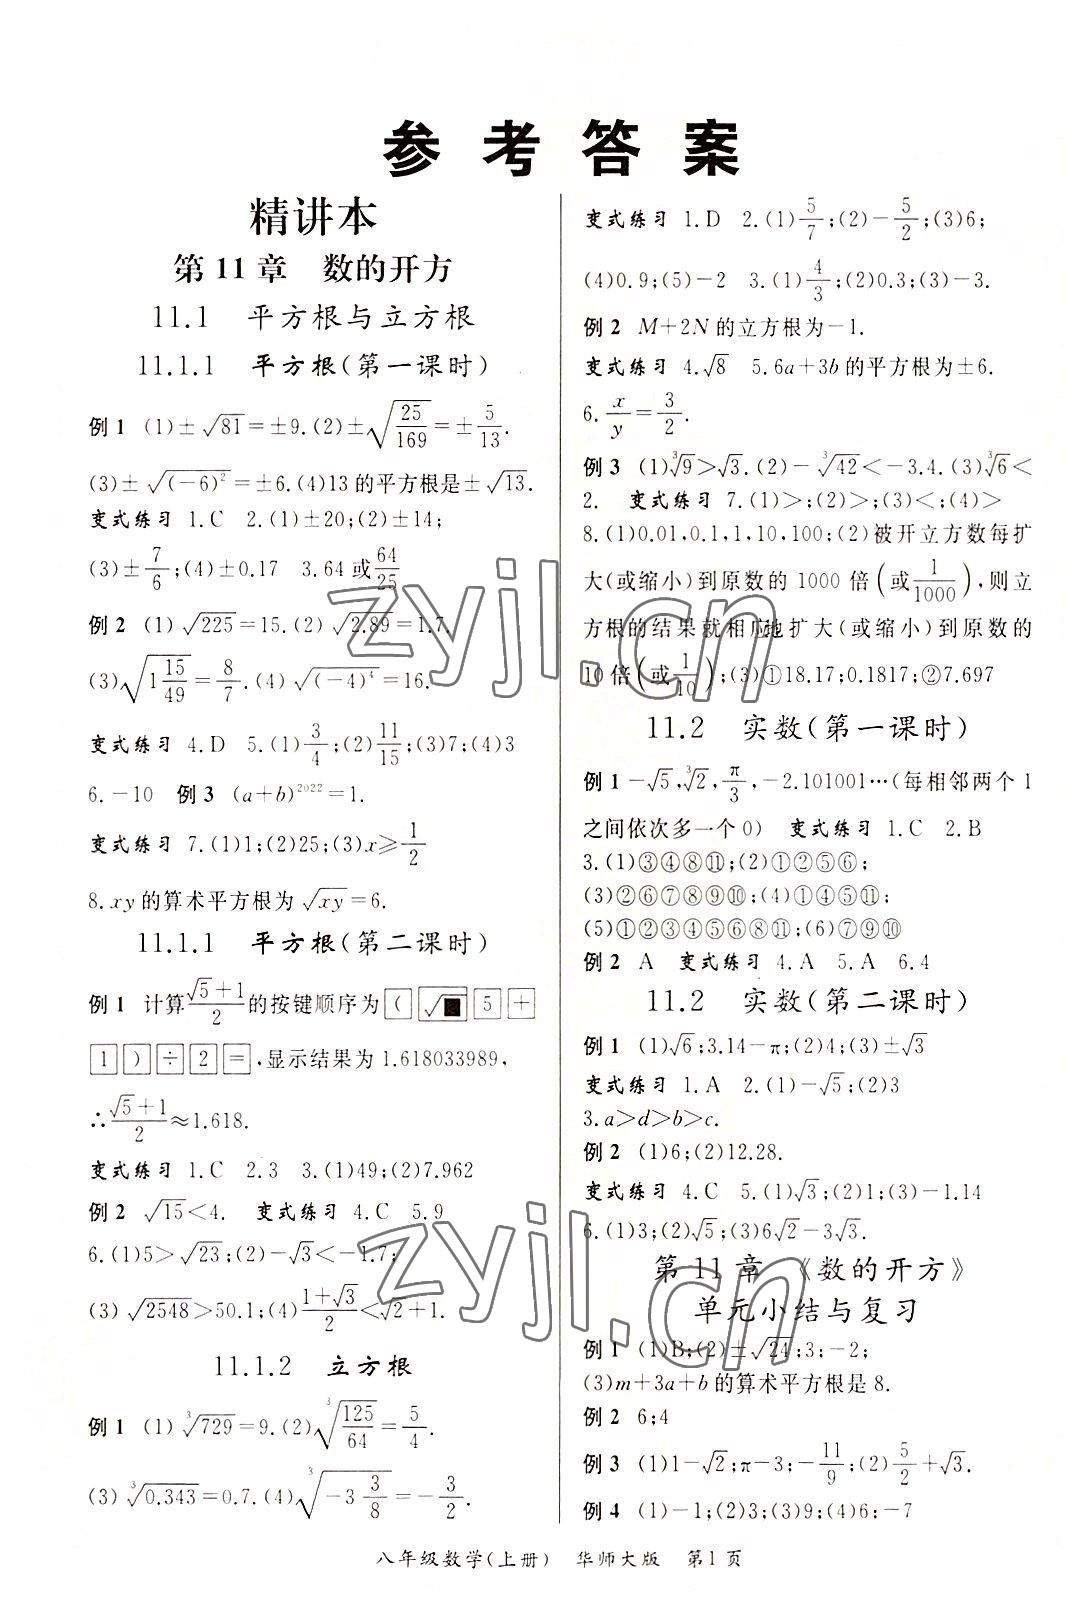 参考答案
精讲本
第11章　数的开方
11.1　平方根与立方根
11.1.1　平方根(第一课时)
例1 (1)±√81=±9.(2)±√(25/169)=±5/13.
(3)±√((-6)²)=±6.(4)13的平方根是±√13.
变式练习 1.C 2.(1)±20;(2)±14;
(3)±7/6;(4)±0.17 3.64或64/25
例2 (1)√225=15.(2)√2.89=1.7.
(3)√(1 15/49)=8/7.(4)√((-4)⁴)=16.
变式练习 4.D 5.(1)3/4;(2)11/15;(3)7;(4)3
6.-10 例3 (a+b)²⁰²²=1.
变式练习 7.(1)1;(2)25;(3)x≥1/2
8.xy的算术平方根为√xy=6.
11.1.1　平方根(第二课时)
例1 计算(√5+1)/2的按键顺序为[(][√■][5][+]
[1][)][÷][2][=],显示结果为1.618033989,
∴(√5+1)/2≈1.618.
变式练习 1.C 2.3 3.(1)49;(2)7.962
例2 √15<4. 变式练习 4.C 5.9
6.(1)5>√23;(2)-√3<-1.7;
(3)√2548>50.1;(4)(1+√3)/2<√2+1.
11.1.2　立方根
例1 (1)³√729=9.(2)³√(125/64)=5/4.
(3)³√0.343=0.7.(4)³√(-3 3/8)=-3/2.
变式练习 1.D 2.(1)5/7;(2)-5/2;(3)6;
(4)0.9;(5)-2 3.(1)4/3;(2)0.3;(3)-3.
例2 M+2N的立方根为-1.
变式练习 4.√8 5.6a+3b的平方根为±6.
6.x/y=3/2.
例3 (1)³√9>√3.(2)-³√42<-3.4.(3)³√6<
2. 变式练习 7.(1)>;(2)>;(3)<;(4)>
8.(1)0.01,0.1,1,10,100;(2)被开立方数每扩
大(或缩小)到原数的1000倍(或1/1000),则立
方根的结果就相应地扩大(或缩小)到原数的
10倍(或1/10);(3)①18.17;0.1817;②7.697
11.2　实数(第一课时)
例1 -√5,³√2,π/3,-2.101001…(每相邻两个1
之间依次多一个0) 变式练习 1.C 2.B
3.(1)③④⑧⑪;(2)①②⑤⑥;
(3)②⑥⑦⑧⑨⑩;(4)①④⑤⑪;
(5)①②③④⑤⑥⑧⑪;(6)⑦⑨⑩
例2 A 变式练习 4.A 5.A 6.4
11.2　实数(第二课时)
例1 (1)√6;3.14-π;(2)4;(3)±√3
变式练习 1.A 2.(1)-√5;(2)3
3.a>d>b>c.
例2 (1)6;(2)12.28.
变式练习 4.C 5.(1)√3;(2)1;(3)-1.14
6.(1)3;(2)√5;(3)6√2-3√3.
第11章　《数的开方》
单元小结与复习
例1 (1)B;(2)±√24;3;-2;
(3)m+3a+b的算术平方根是8.
例2 6;4
例3 (1)1-√2;π-3;-11/9;(2)5/2+√3.
例4 (1)-1;(2)3;(3)9;(4)6;-7
八年级数学(上册)　华师大版　第1页
zyjl.cn
zyjl.cn